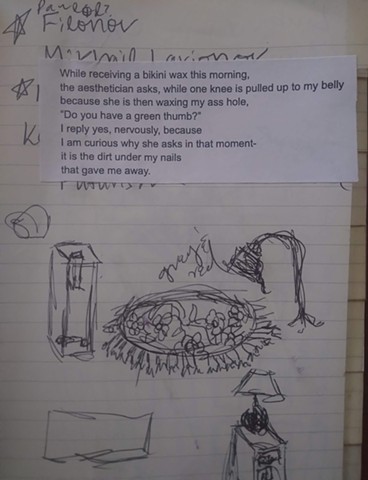 Filonov
While receiving a bikini wax this morning,
the aesthetician asks, while one knee is pulled up to my belly
because she is then waxing my ass hole,
"Do you have a green thumb?"
I reply yes, nervously, because
I am curious why she asks in that moment-
it is the dirt under my nails
that gave me away.